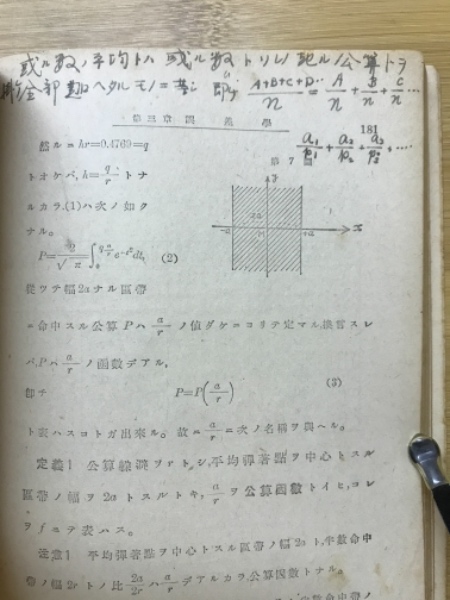 或ル数ノ平均トハ 或ル数トソレノ起ル公算トヲ
全部 ヘタルモノニ 即チ (A+B+C+D‥)/n = A/n + B/n + C/n …
第三章 學
181
a₁/p₁ + a₂/p₂ + a₃/p₃ + …
第 7 圖
然ルニ hr=0.4769=q
トオケバ, h=q/r トナ
ルカラ, (1)ハ次ノ如ク
ナル。
P=2/√π ∫₀^(q a/r) e^(-t²)dt, (2)
從ツテ幅2aナル區帶
ニ命中スル公算 P ハ a/r ノ値ダケニヨリテ定マル, 換言スレ
バ, P ハ a/r ノ函數デアル,
卽チ P=P(a/r) (3)
ト表ハスコトガ出來ル。故ニ a/r ニ次ノ名稱ヲ與ヘル。
定義1 公算躱避ヲ r トシ, 平均彈著點ヲ中心トスル
區帶ノ幅ヲ 2a トスルトキ, a/r ヲ公算因數トイヒ, コレ
ヲ f ニテ表ハス。
注意1 平均彈著點ヲ中心トスル區帶ノ幅 2a ト, 半數命中
帶ノ幅 2r トノ比 2a/2r ハ a/r デアルカラ, 公算因數トナル。